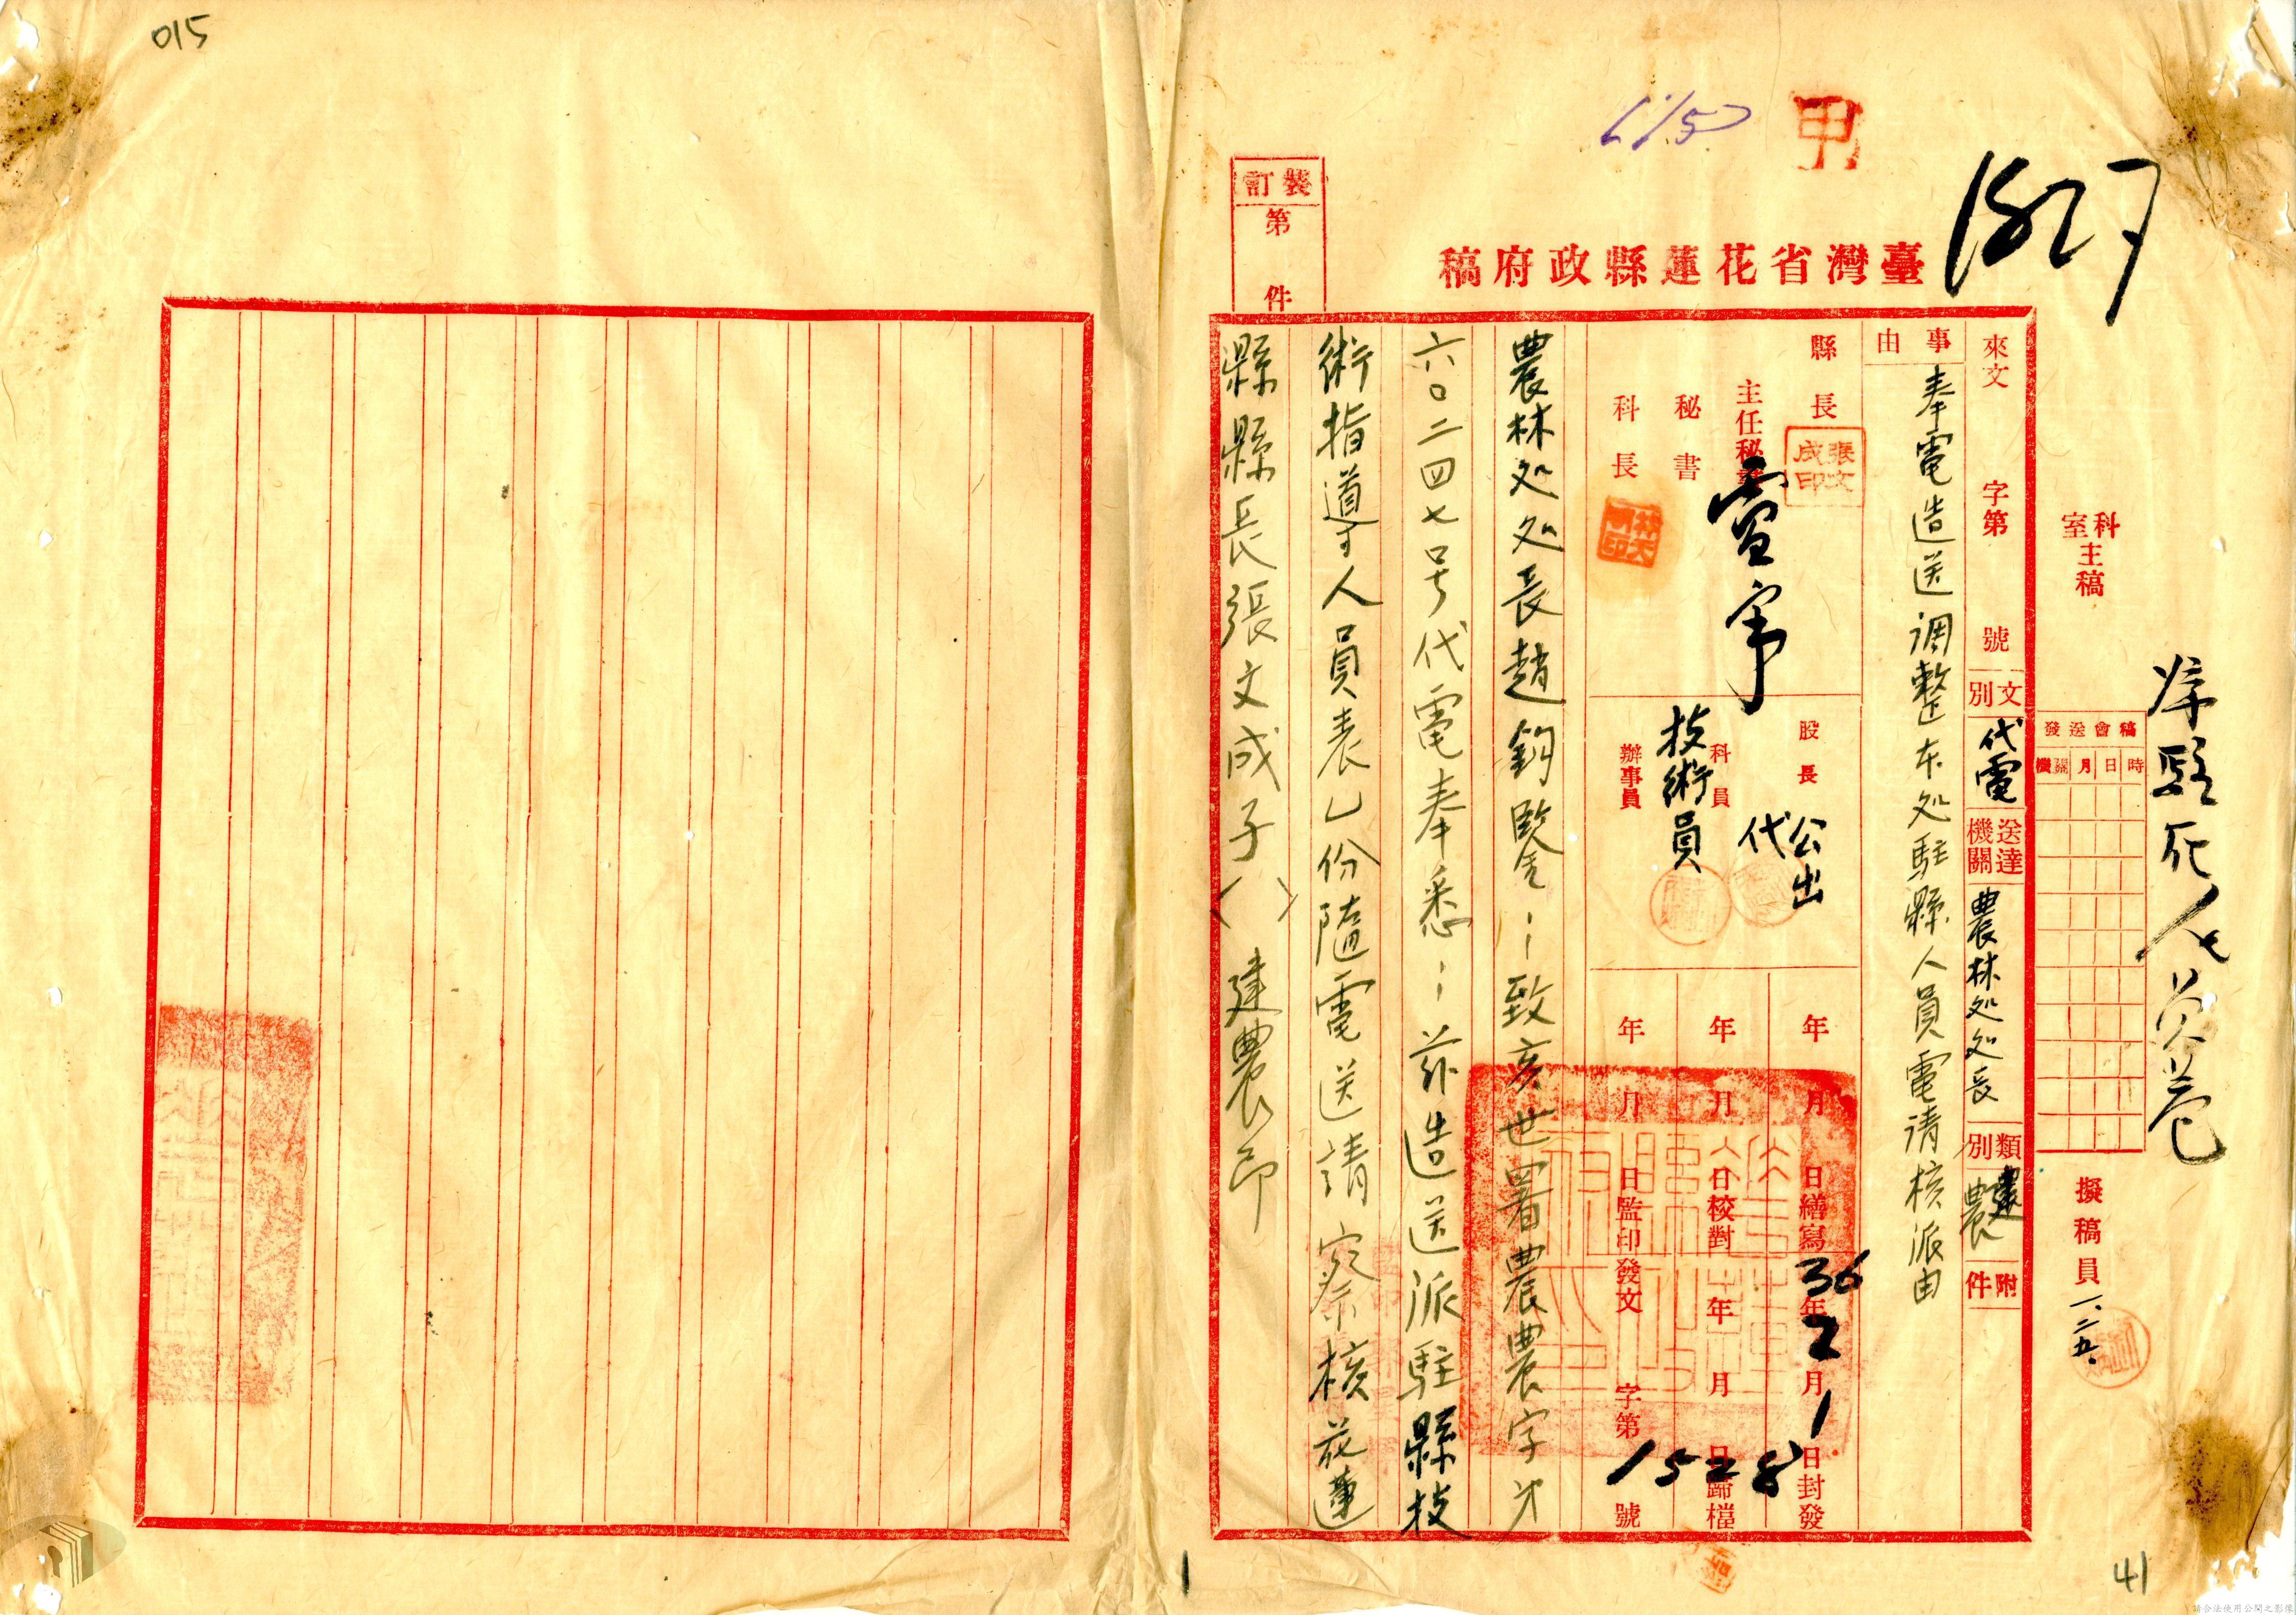 015
615
甲
1527
裝訂
第
件
臺灣省花蓮縣政府稿
科室主稿
稿會送發
時
日
月
機關
擬稿員
一.二五.
來文
字第
號
文別
代電
送達機關
農林处处長
類別
建農
附件
事由
奉電造送调整本处駐縣人員電请核派由
縣長
張文成印
主任秘書
秘書
科長
股長
公出
代
科員
技術員
辦事員
年月日繕寫
36年2月1日封發
年月日校對
年月日歸檔
年月日監印
發文
字第1528號
農林处处長趙鈞鑒：致亥世署農農字㐧
六〇二四七号代電奉悉：茲造送派駐縣技
術指導人員表乙份隨電送請察核花蓮
縣縣長張文成子（ ）建農印
1
41
請合法使用公開之影像